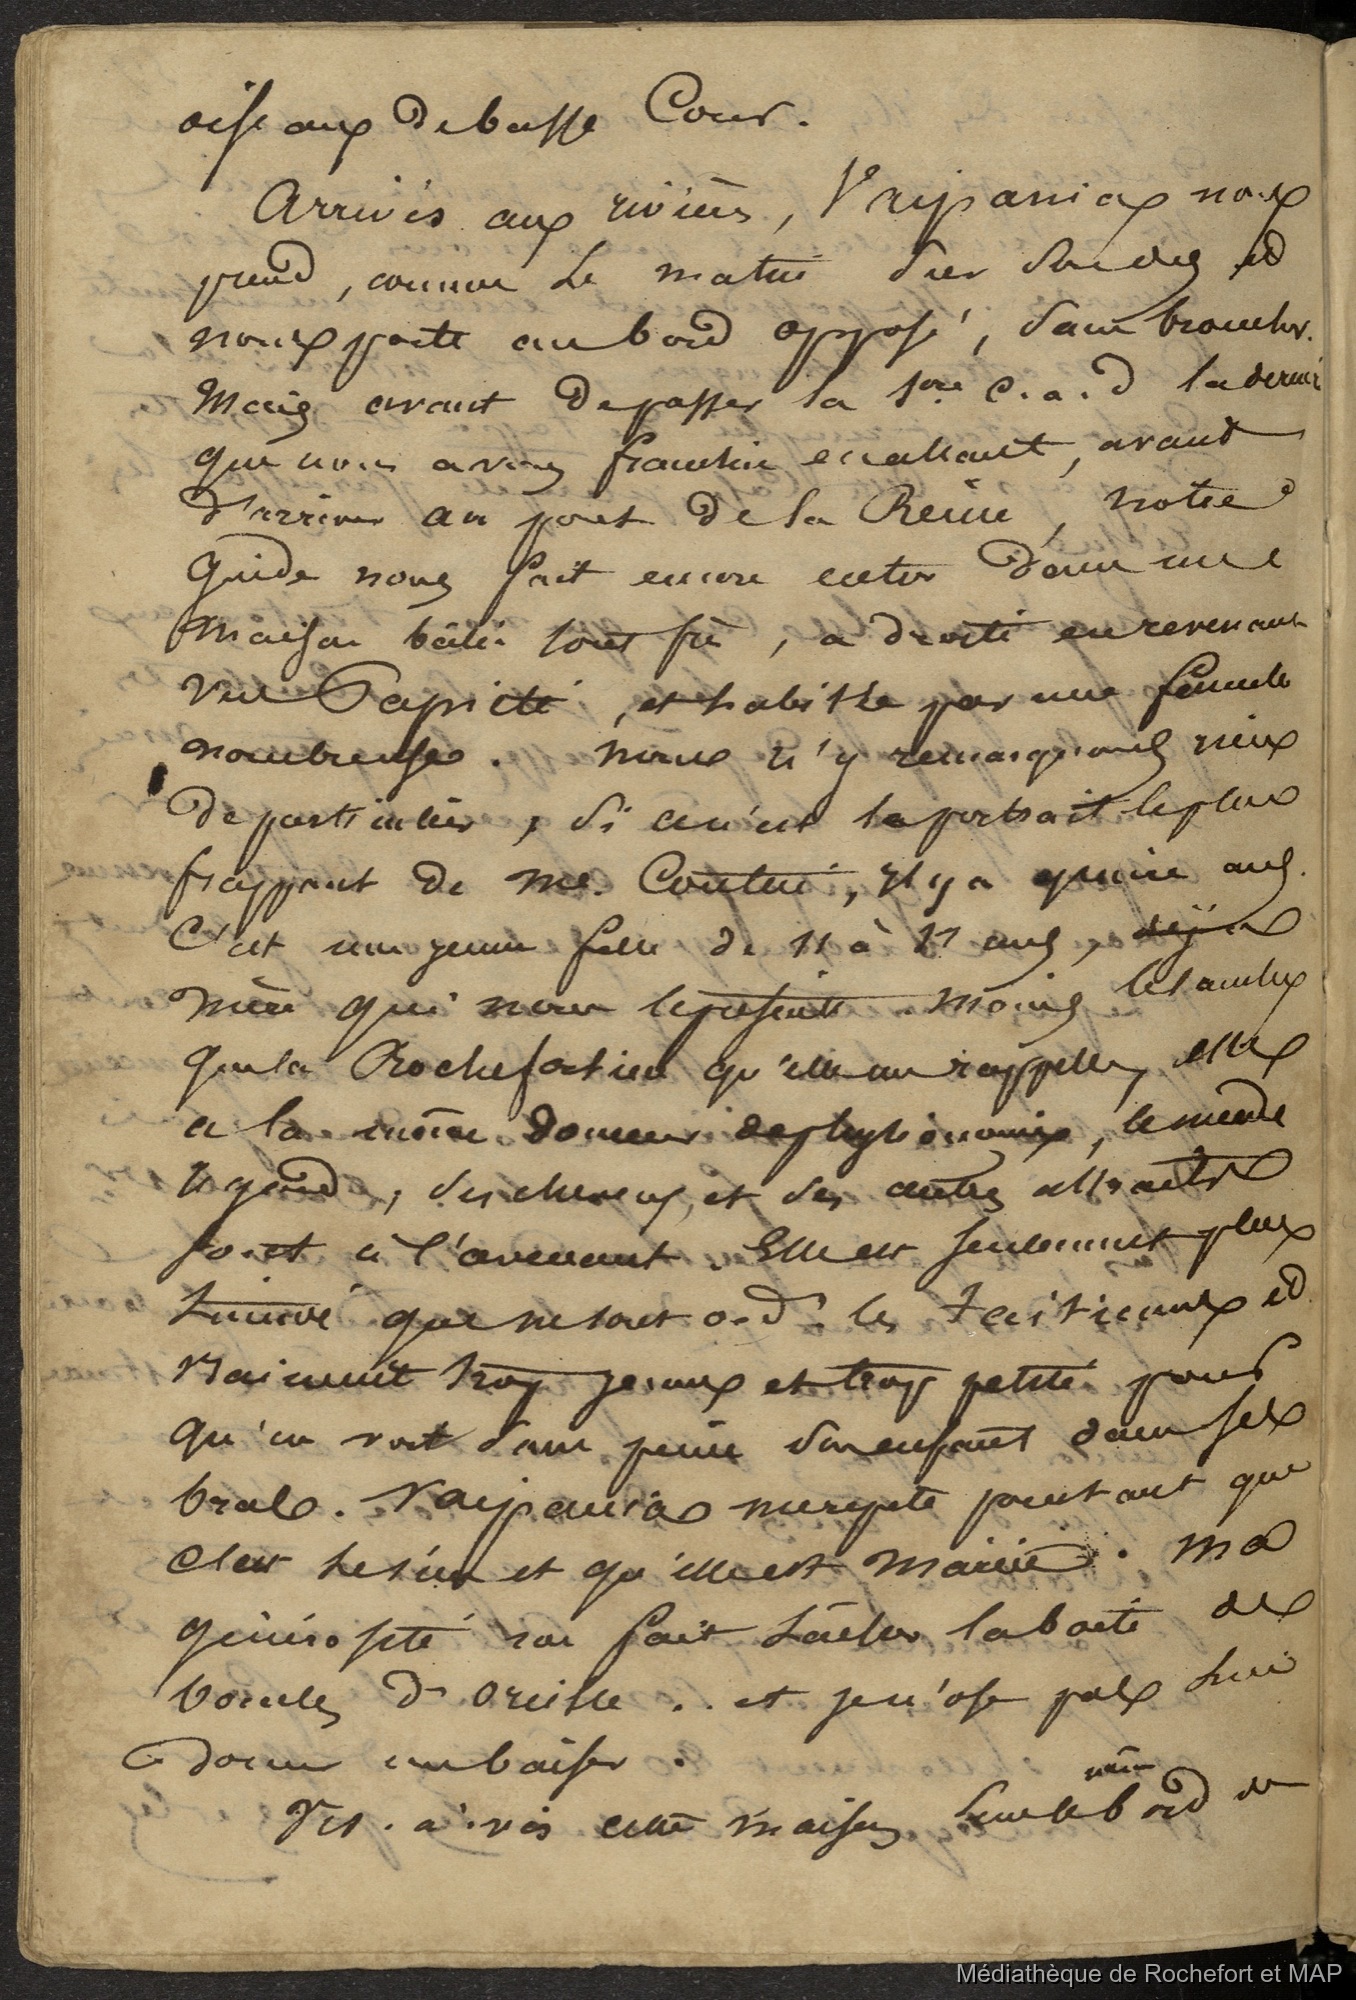 oiseaux de basse Cour.
Arrivés aux rivières, Vaipania nous
prend, comme le matin sur son dos et
nous porte au bord opposé, sans broncher.
Mais avant de passer la 1ere c.a.d la derniere
que nous avons franchie en allant, avant
d'arriver au pont de la Reine, notre
guide nous fait encore entrer dans une
maison bâtie sous fû, a droite en revenant
vers Papiete, et habitée par une famille
nombreuse. nous n'y remarquons rien
de particulier, si ce n'est le portrait le plus
frappant de Me. Coutur, il y a quinze ans.
C'est une jeune fille de 11 à 12 ans, déjà
mère qui nous le presente. Moins
que la Rochefortien qu'elle me rappelle, elle
a la même douceur de physionomie, le même
regard, ses cheveux, et ses autres attraits
sont à l'avenant. Elle est seulement plus
que ne sont o.d. les Taitiennes et
vraiment trop jeune et trop petite pour
qu'on voit sans peine son enfant dans ses
bras. Vaipania me repete pourtant que
c'est le sien et qu'elle est mariée. Ma
générosité va fait lâcher la boite de
boucles d'oreille .. et je n'ose pas lui
donner un baiser.
Vis. à vis cette maison sur le même bord de
Médiathèque de Rochefort et MAP